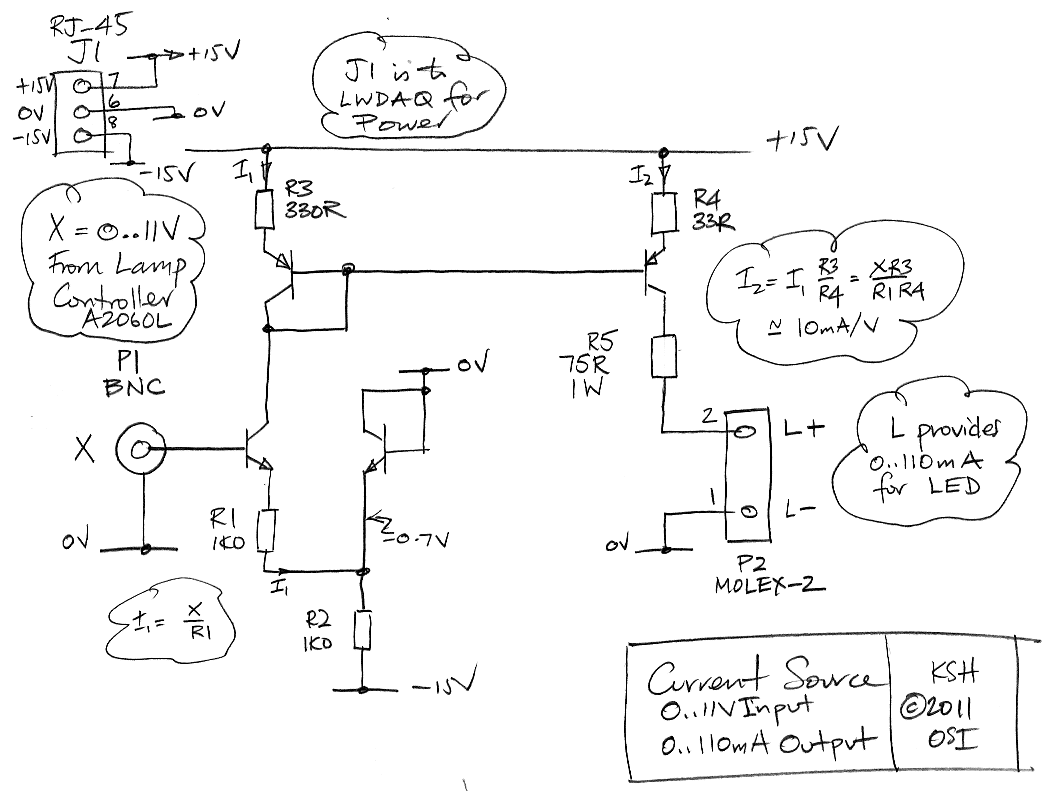 RJ-45
J1
+15V
7
+15V
6
0V
0V
8
-15V
-15V
J1 is to
LWDAQ for
Power
+15V
I1
R3
330R
I2
R4
33R
X = 0..11V
From Lamp
Controller
A2060L
I2 = I1 R3/R4 = XR3/R1R4
≃ 10mA/V
P1
BNC
R5
75R
1W
0V
X
2
L+
L provides
0..110mA
for LED
R1
1K0
-0.7V
1
L-
0V
0V
I1
P2
MOLEX-2
I1 = X/R1
R2
1K0
-15V
Current Source
0..11V Input
0..110mA Output
KSH
©2011
OSI